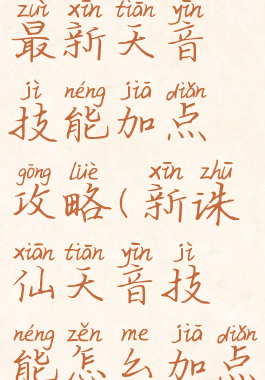 zuì xīn tiān yīn
最新天音
jì néng jiā diǎn
技能加点
gōng lüè xīn zhū
攻略(新诛
xiān tiān yīn jì
仙天音技
néng zěn me jiā diǎn
能怎么加点